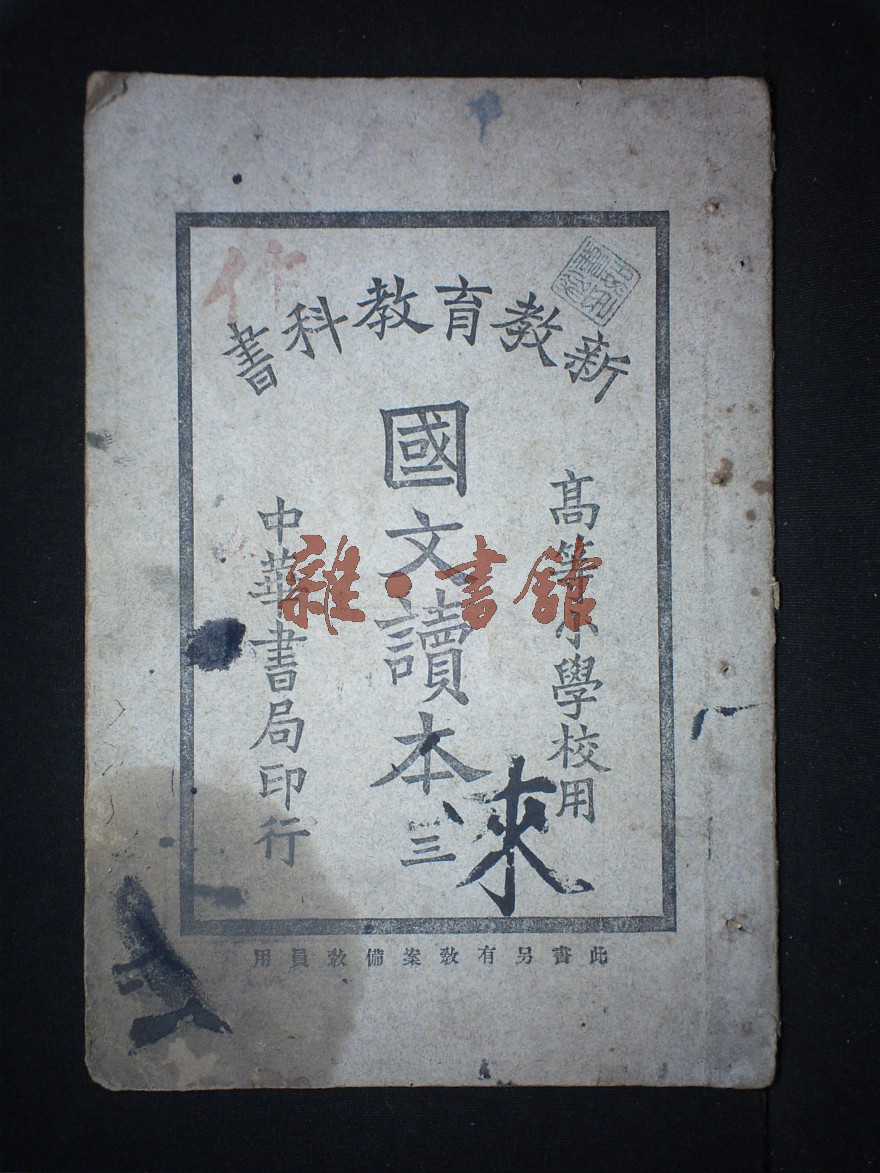 新教育教科書
高等小學校用
國文讀本
三
中華書局印行
此書另有教案備教員用
來
作
雜·書館